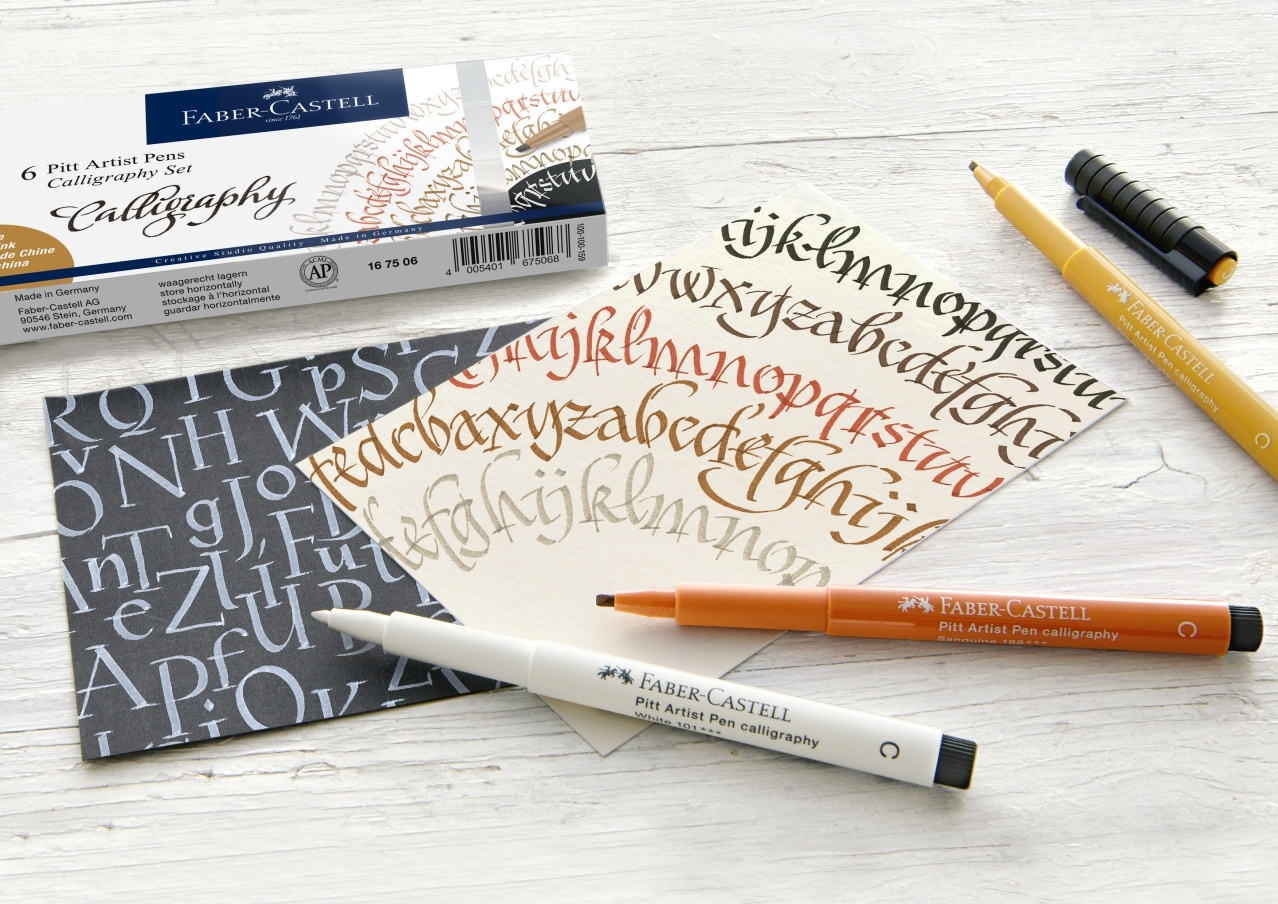 FABER-CASTELL
since 1761
6 Pitt Artist Pens
Calligraphy Set
Calligraphy
Creative Studio Quality · Made in Germany
de Chine
Made in Germany
Faber-Castell AG
90546 Stein, Germany
www.faber-castell.com
waagerecht lagern
store horizontally
stockage à l'horizontal
guardar horizontalmente
ACMI
AP
16 75 06
4 005401 675068
100-100-159
ijklmnopqrstu
vwxyzabcdefghi
hijklmnopqrstuv
fedcbaxyzabcdefghijk
defghijklmnop
RQTGpS
NHW
gJo
AnTFut
eZlí
ApfUB
iQv
FABER-CASTELL
Pitt Artist Pen calligraphy
C
FABER-CASTELL
Pitt Artist Pen calligraphy
Sanguine 188***
C
FABER-CASTELL
Pitt Artist Pen calligraphy
White 101***
C